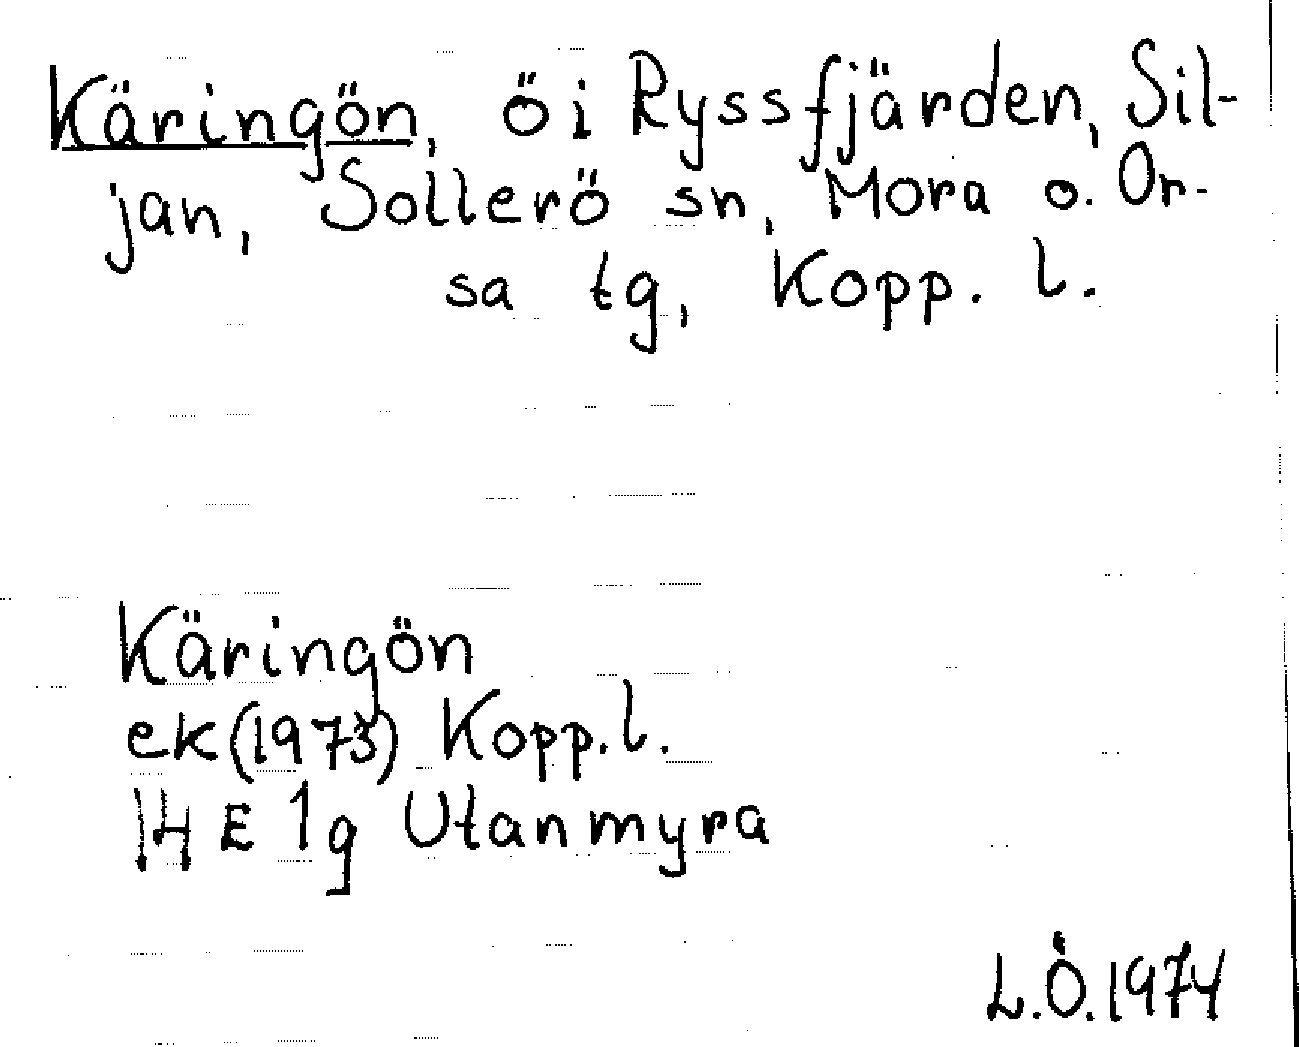 Käringön, ö i Ryssfjärden, Sil-
jan, Sollerö sn, Mora o. Or-
sa tg, Kopp. l.
Käringön
ek (1973) Kopp. l.
14 E 1g Utanmyra
L.Ö. 1974